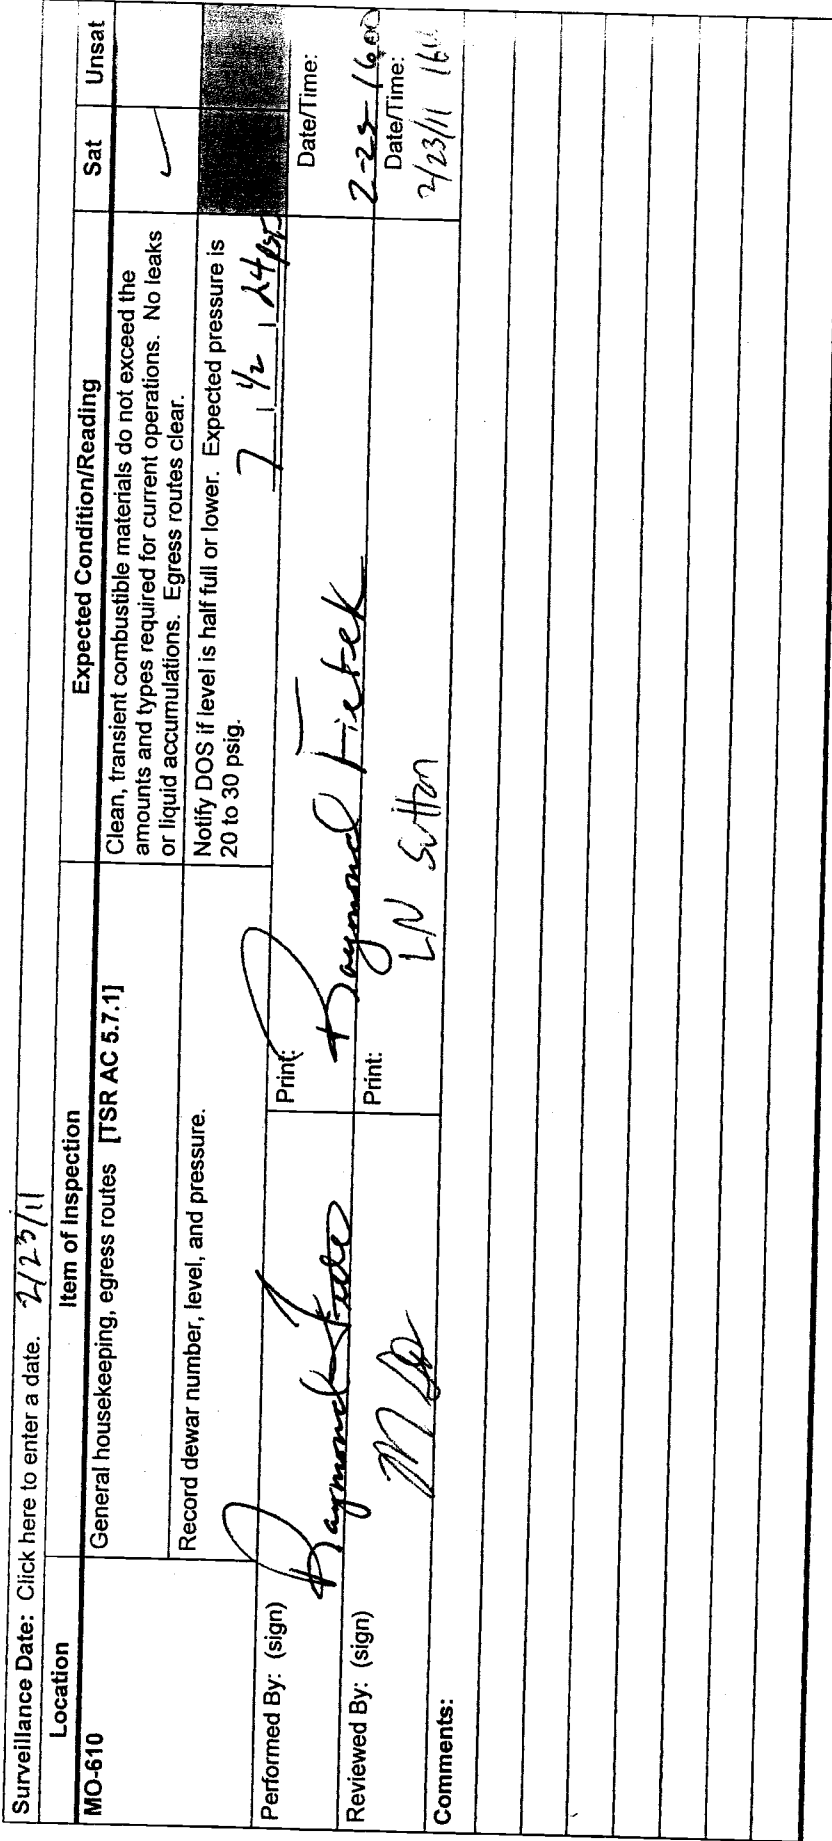 Surveillance Date: Click here to enter a date. 2/23/11
Location
Item of Inspection
Expected Condition/Reading
Sat
Unsat
MO-610
General housekeeping, egress routes [TSR AC 5.7.1]
Clean, transient combustible materials do not exceed the
amounts and types required for current operations. No leaks
or liquid accumulations. Egress routes clear.
✓
Record dewar number, level, and pressure.
Notify DOS if level is half full or lower. Expected pressure is
20 to 30 psig.
7 , 1/2 , 24 psi
Performed By: (sign)
Raymond
Print:
Raymond
Date/Time:
2-23-1600
Reviewed By: (sign)
Print:
LN Sutton
Date/Time:
2/23/11
Comments: